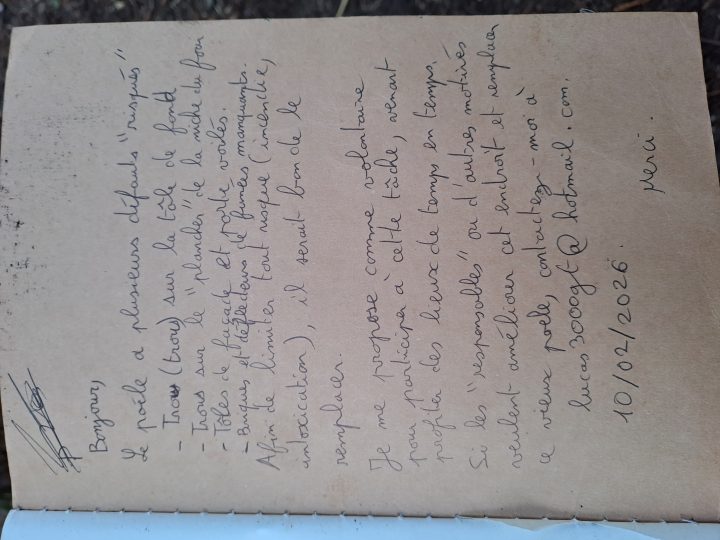 Bonjour,
Le poêle a plusieurs défauts "risqués"
- Trous (trous) sur la tôle de fond
- Trous sur le "plancher" de la niche du four
- Tôles de façade et porte voilés.
- Briques et déflecteurs de fumées manquants.
Afin de limiter tout risque (incendie,
intoxication), il serait bon de le
remplacer.
Je me propose comme volontaire
pour participer à cette tâche, venant
profiter des lieux de temps en temps.
Si les "responsables" ou d'autres motivés
veulent améliorer cet endroit et remplacer
ce vieux poêle, contactez-moi à
lucas3000gt@hotmail.com.
10/02/2026. Merci.